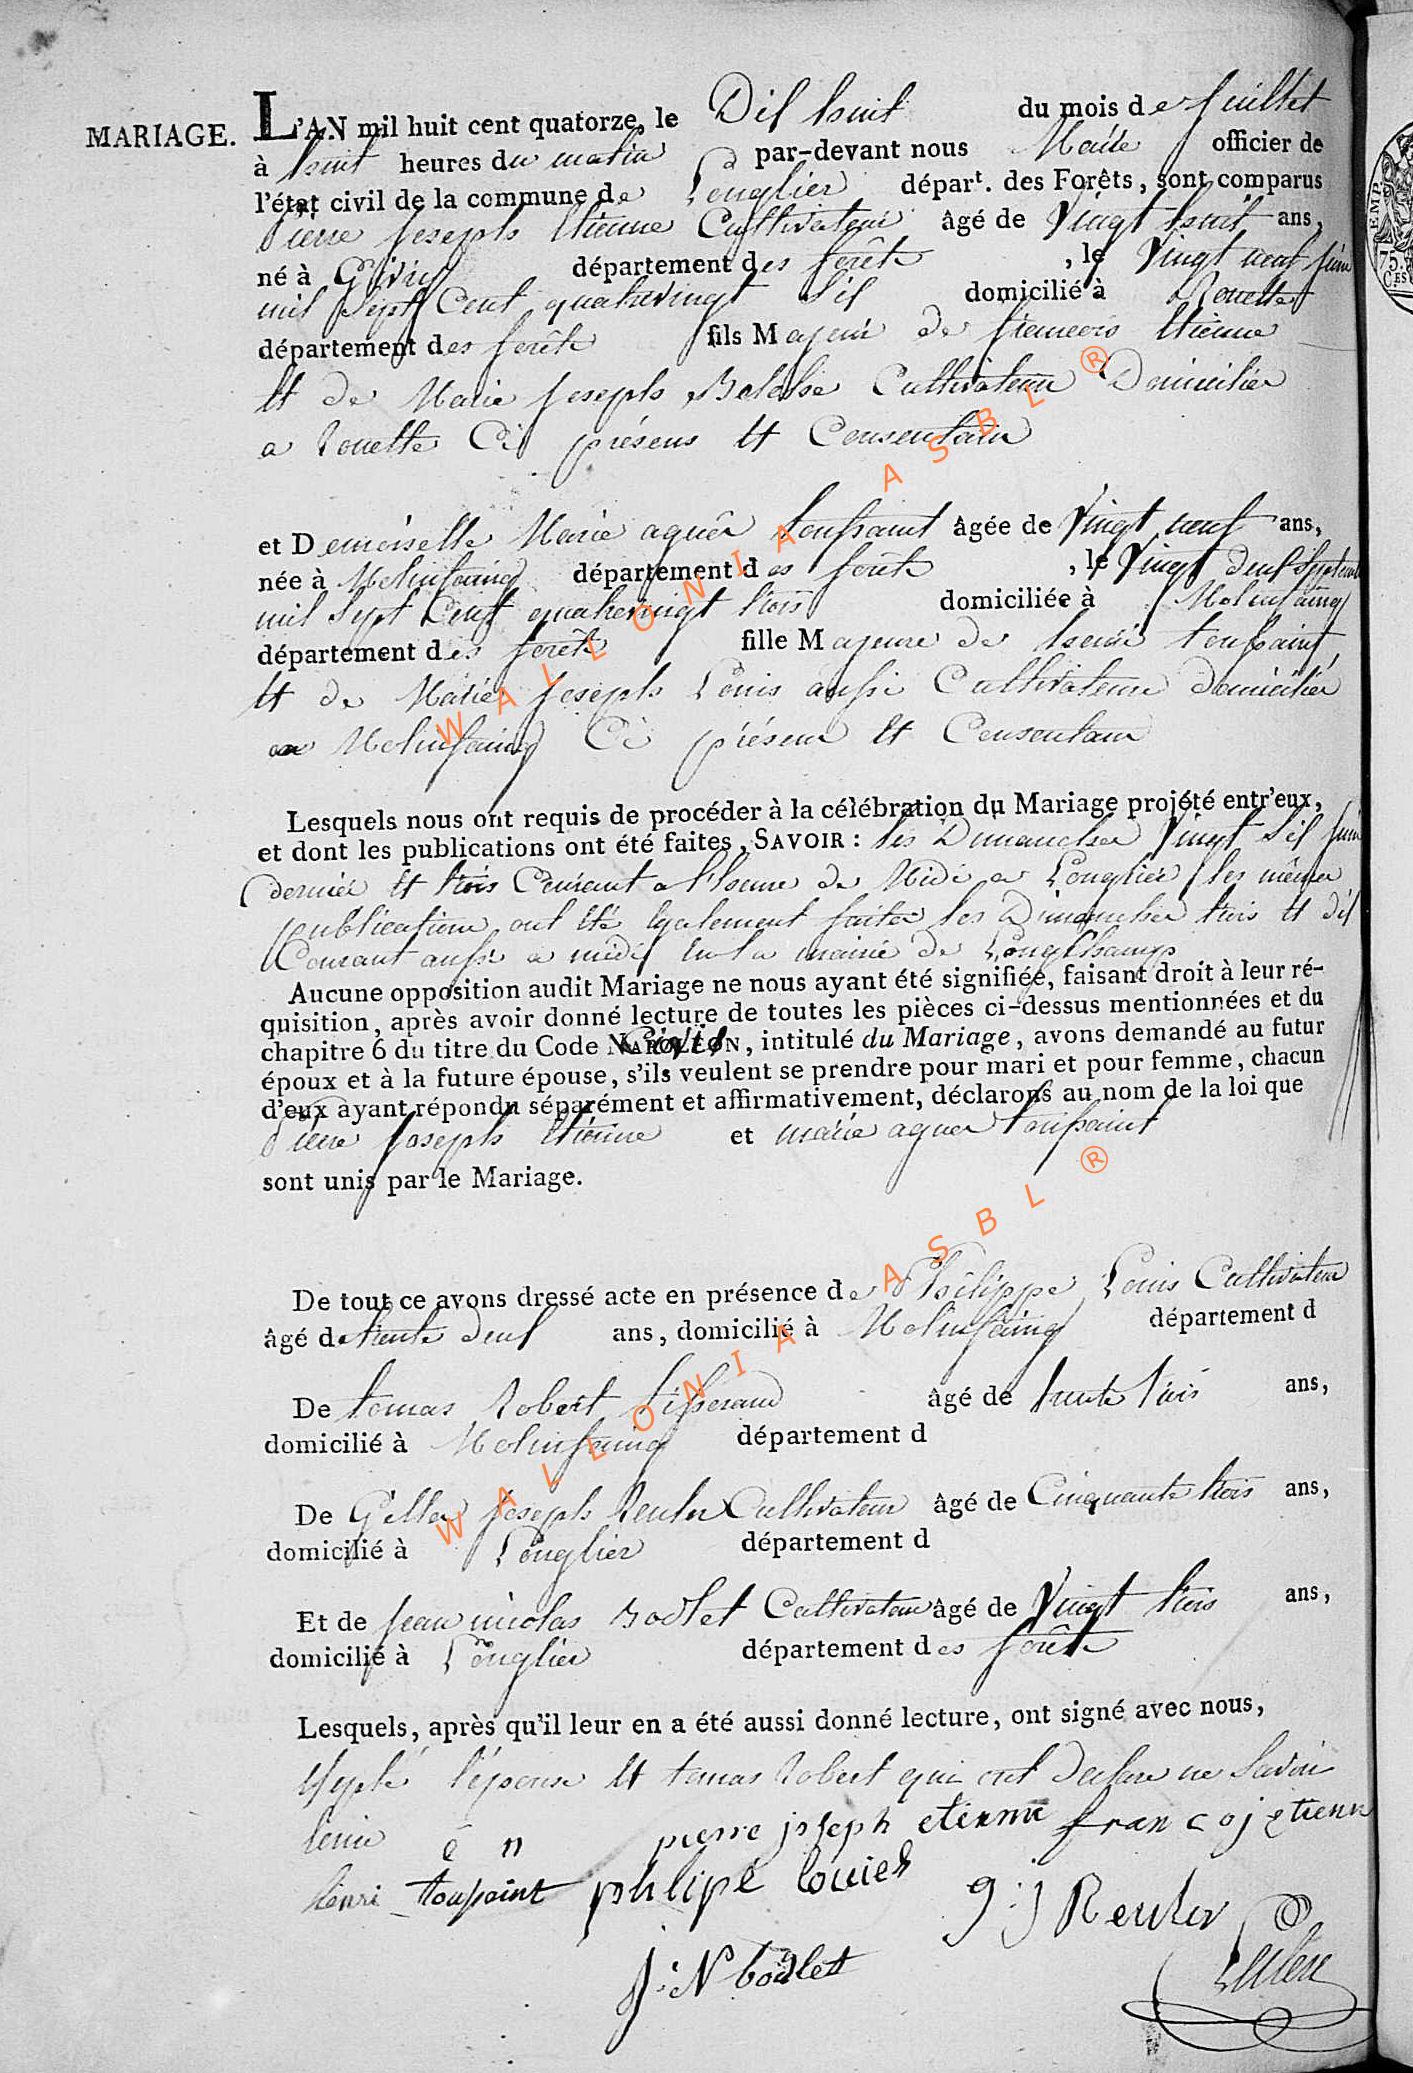 MARIAGE. L'AN mil huit cent quatorze, le Dix huit du mois de Juillet
à huit heures du matin par-devant nous Maire officier de
l'état civil de la commune de Longlier départ. des Forêts, sont comparus
Pierre Joseph Etienne Cultivateur âgé de Vingt huit ans,
né à Givry département des forêts, le Vingt neuf Juin
mil Sept Cent quatrevingt Six domicilié à Rouette
département des forêts fils Majeur de francois Etienne
Et de Marie Joseph Cultivateur Domicilier
a Rouette Ci présens Et Consentans
et Demoiselle Marie agnès toussaint âgée de Vingt neuf ans,
née à Molinfaing département des forêts, le Vingt deux Septembre
mil Sept Cent quatrevingt trois domiciliée à Molinfaing
département des forêts fille Majeure de henri toussaint
Et de Marie Joseph Louis aussi Cultivateur domicilier
a Molinfaing Ci présens Et Consentans
Lesquels nous ont requis de procéder à la célébration du Mariage projeté entr'eux,
et dont les publications ont été faites, SAVOIR : les Dimanches Vingt Six Juin
dernier Et trois Courant a l'heure de Midi a Longlier les mêmes
publications ont Eté Egalement faites les Dimanches trois Et dix
Courant aussi a midi En la mairie de Longchamps
Aucune opposition audit Mariage ne nous ayant été signifiée, faisant droit à leur ré-
quisition, après avoir donné lecture de toutes les pièces ci-dessus mentionnées et du
chapitre 6 du titre du Code NAPOLÉON, intitulé du Mariage, avons demandé au futur
époux et à la future épouse, s'ils veulent se prendre pour mari et pour femme, chacun
d'eux ayant répondu séparément et affirmativement, déclarons au nom de la loi que
Pierre Joseph Etienne et marie agnes toussaint
sont unis par le Mariage.
De tout ce avons dressé acte en présence de Philippe Louis Cultivateur
âgé de trente deux ans, domicilié à Molinfaing département d
De tomas Robert tisserand âgé de trente trois ans,
domicilié à Molinfaing département d
De Gilles Joseph Reuter Cultivateur âgé de Cinquante trois ans,
domicilié à Longlier département d
Et de Jean nicolas Bodlet Cultivateur âgé de Vingt trois ans,
domicilié à Longlier département des forêts
Lesquels, après qu'il leur en a été aussi donné lecture, ont signé avec nous,
Excepté l'épouse Et tomas Robert qui ont Declare ne Savoir
pierre joseph etienne francoj etienne
henri toussaint philipe louies g:j Reuter
J:N bodlet
WALLONIA ASBL ®
WALLONIA ASBL ®